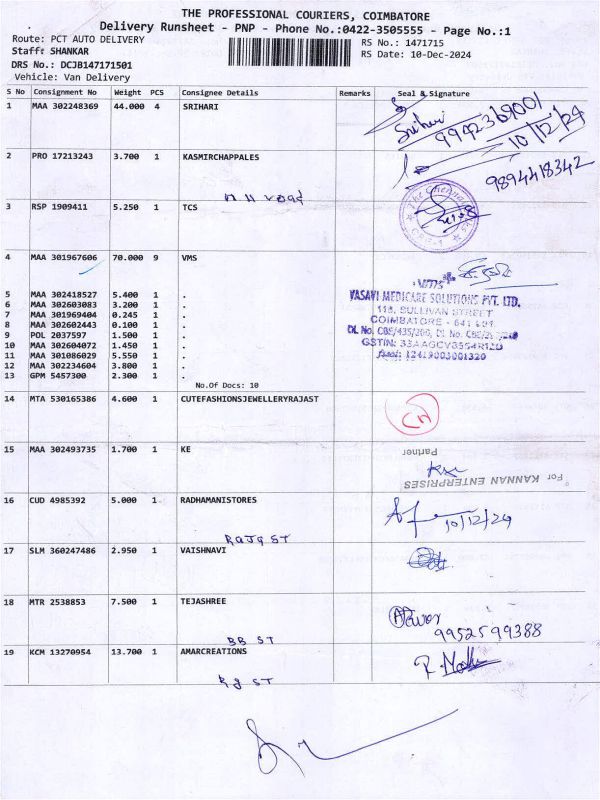 THE PROFESSIONAL COURIERS, COIMBATORE
Delivery Runsheet - PNP - Phone No.:0422-3505555 - Page No.:1
Route: PCT AUTO DELIVERY
RS No.: 1471715
Staff: SHANKAR
RS Date: 10-Dec-2024
DRS No.: DCJB147171501
Vehicle: Van Delivery
S No Consignment No Weight PCS Consignee Details Remarks Seal & Signature
1 MAA 302248369 44.000 4 SRIHARI
Srihari
9942369001
10/12/24
2 PRO 17213243 3.700 1 KASMIRCHAPPALES
9894418342
3 RSP 1909411 5.250 1 TCS
4 MAA 301967606 70.000 9 VMS
VASAVI MEDICARE SOLUTIONS PVT. LTD.
118, SULLIVAN STREET
COIMBATORE - 641 001
5 MAA 302418527 5.400 1 .
6 MAA 302603083 3.200 1 .
7 MAA 301969404 0.245 1 .
8 MAA 302602443 0.100 1 .
9 POL 2037597 1.500 1 .
10 MAA 302604072 1.450 1 .
11 MAA 301086029 5.550 1 .
12 MAA 302234604 3.800 1 .
13 GPM 5457300 2.300 1 .
No.Of Docs: 10
14 MTA 530165386 4.600 1 CUTEFASHIONSJEWELLERYRAJAST
15 MAA 302493735 1.700 1 KE
For KANNAN ENTERPRISES
Partner
16 CUD 4985392 5.000 1 RADHAMANISTORES
10/12/24
RaJa ST
17 SLM 360247486 2.950 1 VAISHNAVI
18 MTR 2538853 7.500 1 TEJASHREE
9952599388
BB ST
19 KCM 13270954 13.700 1 AMARCREATIONS
RJ ST